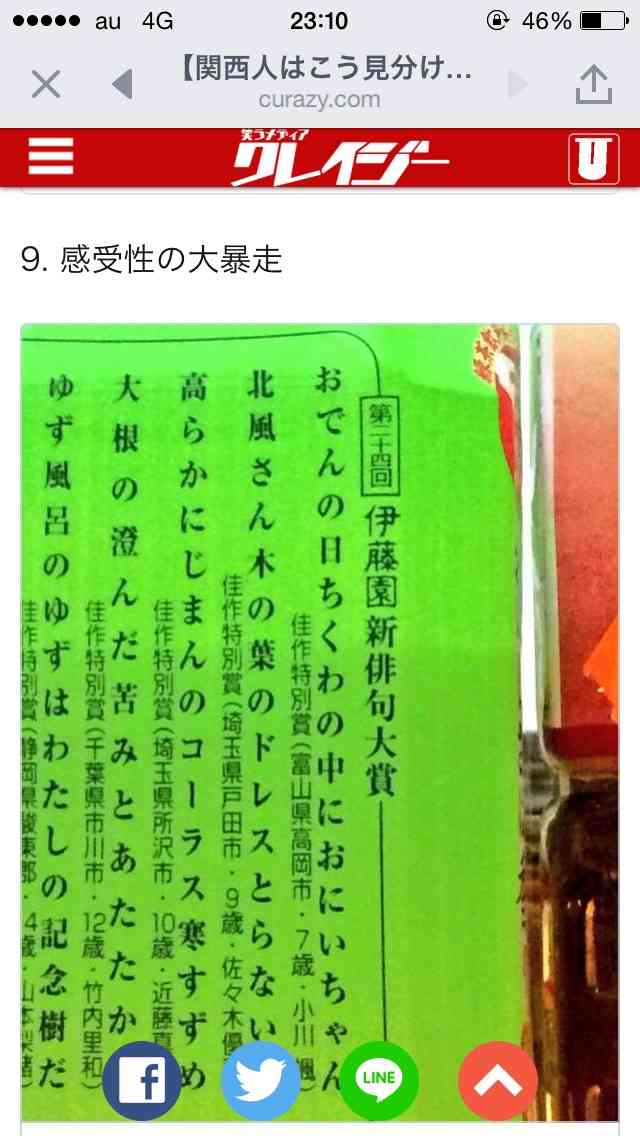 au 4G 23:10 46%
【関西人はこう見分け...
curazy.com
笑うメディア
クレイジー
9. 感受性の大暴走
第二十四回 伊藤園新俳句大賞
おでんの日ちくわの中におにいちゃん
佳作特別賞(富山県高岡市・7歳・小川
北風さん木の葉のドレスとらない
佳作特別賞(埼玉県戸田市・9歳・佐々木優
高らかにじまんのコーラス寒すずめ
佳作特別賞(埼玉県所沢市・10歳・近藤真
大根の澄んだ苦みとあたたか
佳作特別賞(千葉県市川市・12歳・竹内里和)
ゆず風呂のゆずはわたしの記念樹だ
佳作特別賞(静岡県駿東郡・4歳・山本
LINE